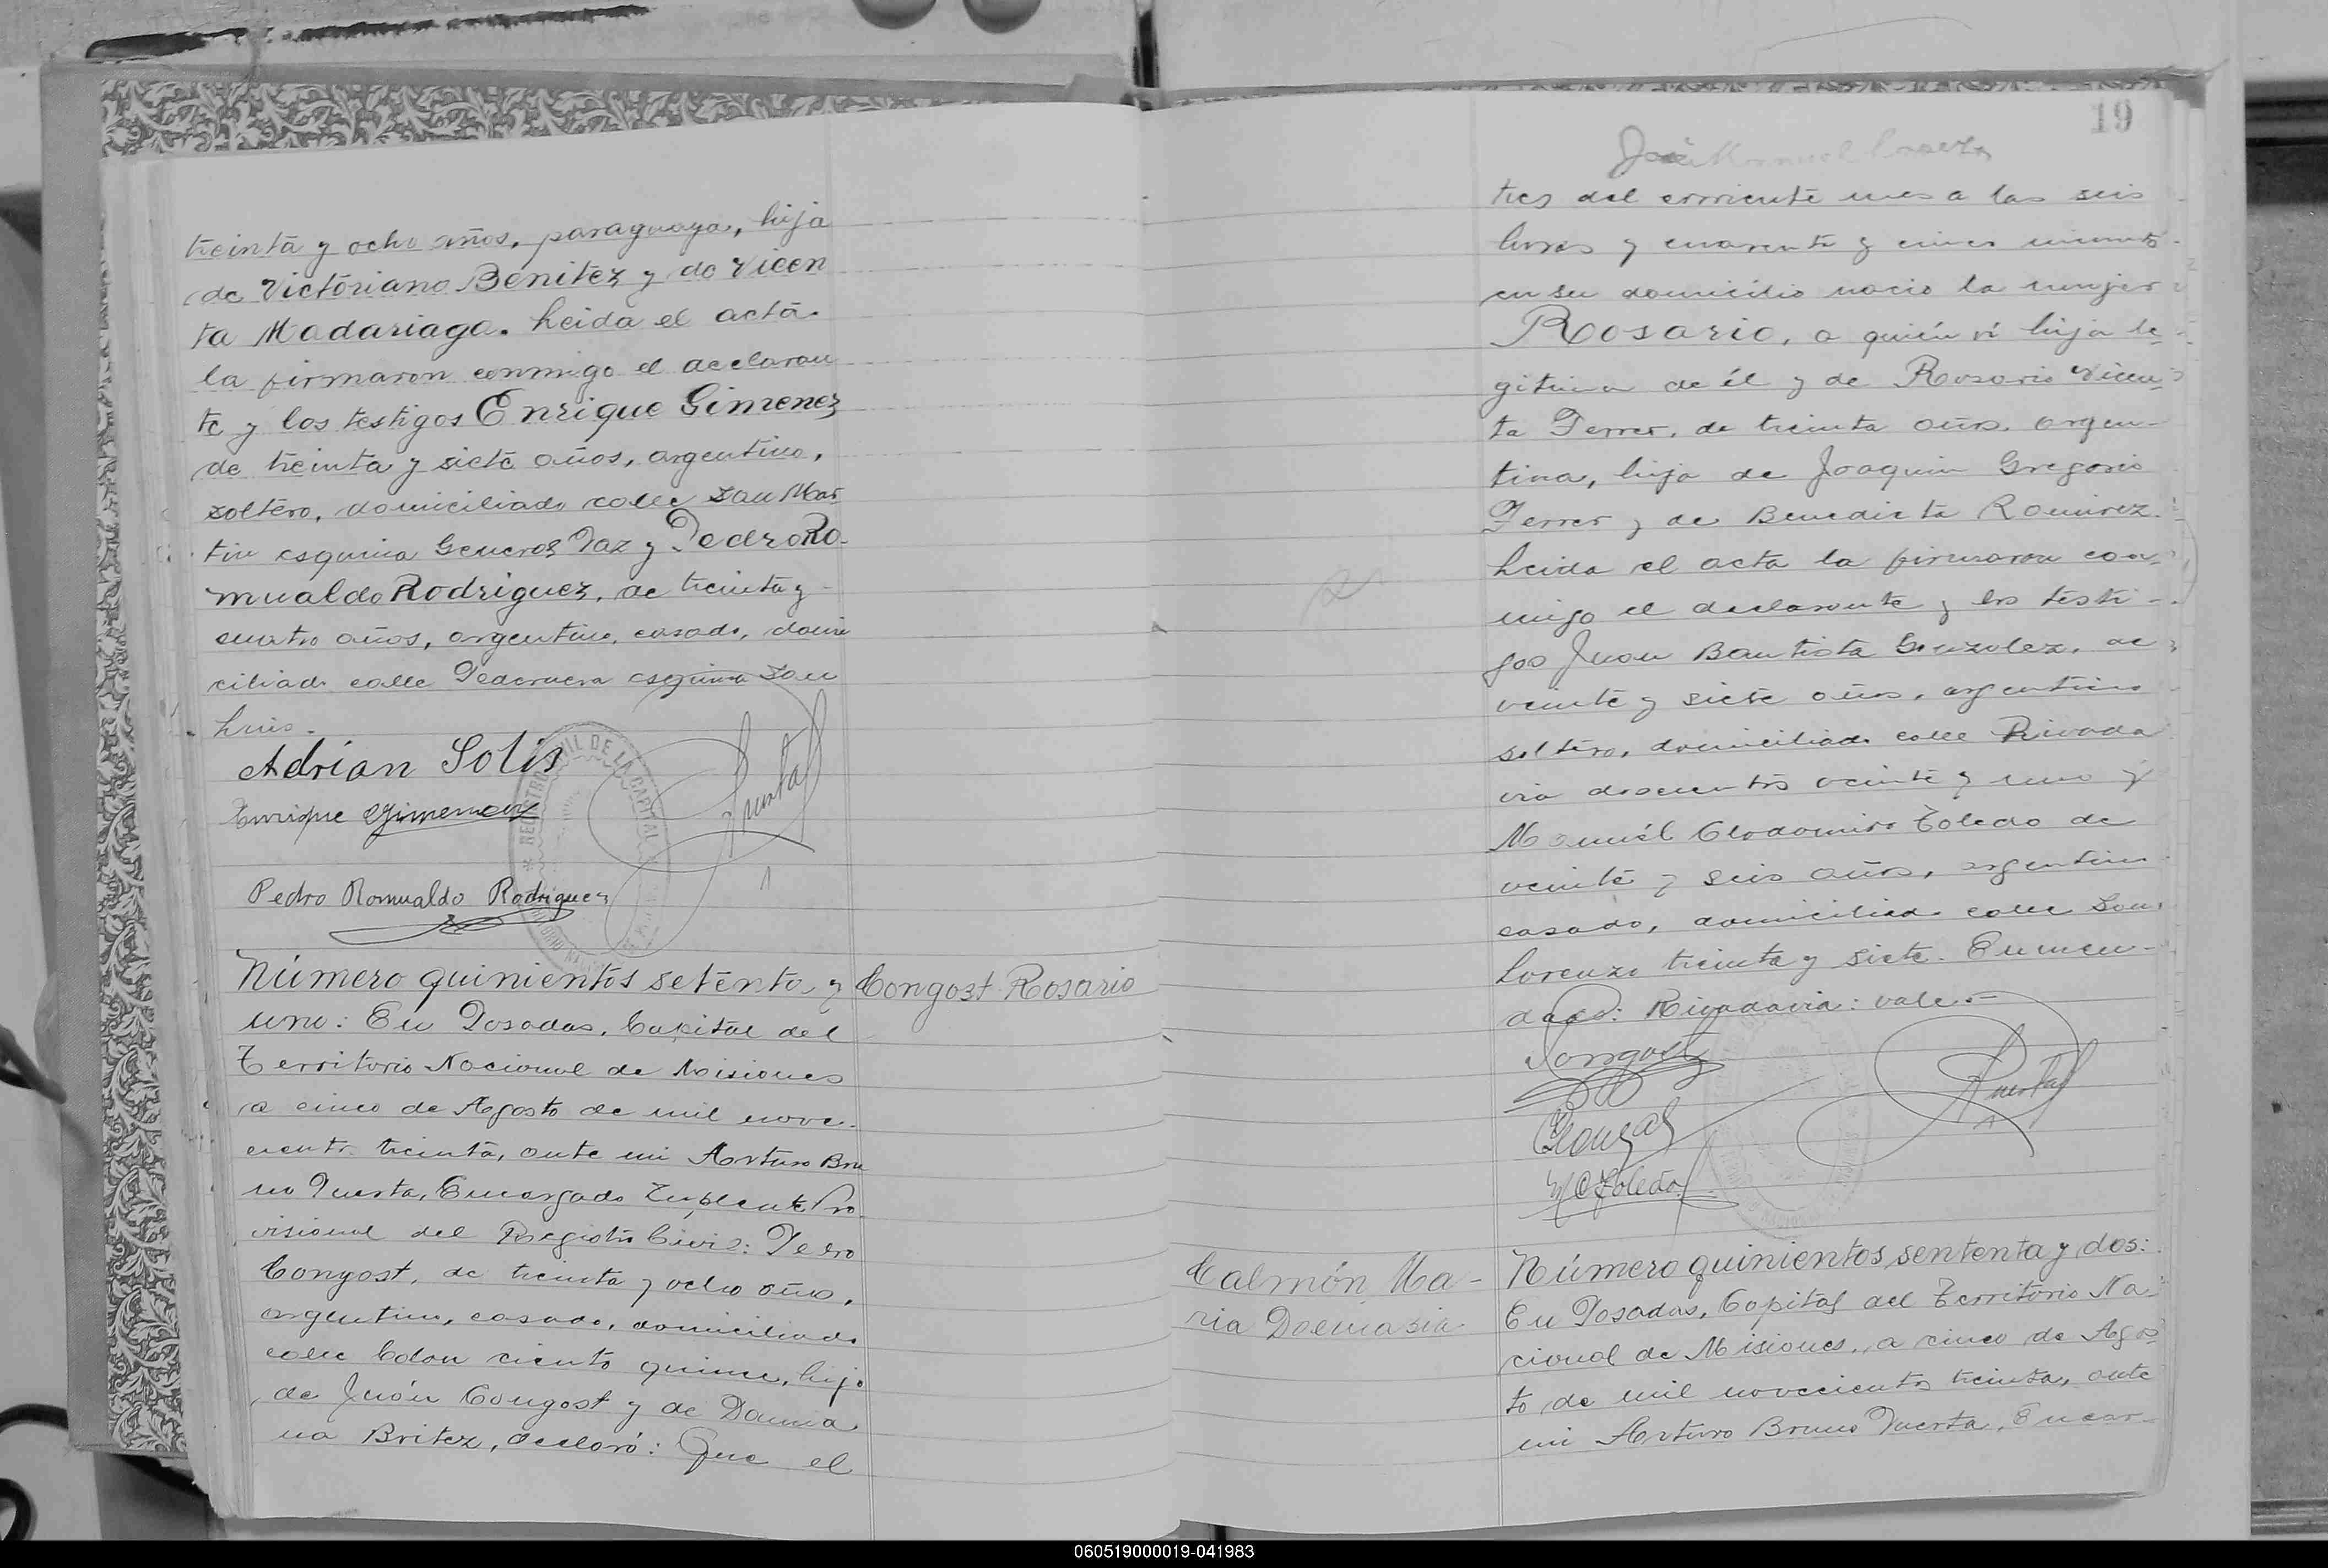 treinta y ocho años, paraguaya, hija
de Victoriano Benitez y do Vicen
ta Madariaga. Leida el acta
la firmaron conmigo el declaran
te y los testigos Enrique Gimenez
de treinta y siete años, argentino,
soltero, domiciliado calle San Mar
tin esquina General Paz y Pedro Ro-
mualdo Rodriguez, de treinta y
cuatro años, argentino, casado, domi
ciliado calle Pedernera esquina San
Luis.
Adrián Solis
Enrique Gimenez
Puerta
Pedro Romualdo Rodriguez
REGISTRO CIVIL DE LA CAPITAL
Número quinientos setenta y
uno: En Posadas, Capital del
Territorio Nacional de Misiones
a cinco de Agosto de mil nove-
ciento treinta, ante mi Arturo Bru
no Puerta, Encargado Suplente Pro
visional del Registro Civil: Pedro
Congost, de treinta y ocho años,
argentino, casado, domiciliado
calle Colon ciento quince, hijo
de Juán Congost y de Damia
na Britez, declaró: Que el
Congost Rosario
19
José Manuel
tres del corriente mes a las seis
horas y cuarenta y cinco minutos
en su domicilio nació la mujer
Rosario, a quién ví hija le-
gitima de él y de Rosario Vicen-
ta Ferrer, de treinta años, argen-
tina, hija de Joaquin Gregorio
Ferrer y de Benedicta Ramirez.
Leida el acta la firmaron con-
migo el declarante y los testi-
gos Juan Bautista Gonzalez, de
veinte y siete años, argentino
soltero, domiciliado calle Rivada
via doscientos veinte y uno y
Manuél Clodomiro Toledo de
veinte y seis años, argentino
casado, domiciliado calle San
Lorenzo treinta y siete. Enmen-
dado: Rivadavia: vale.-
Congost
Puerta
Gonzal
M C Toledo
Calmón Ma-
ria Damasia
Número quinientos sententa y dos:
En Posadas, Capital del Territorio Na
cional de Misiones, a cinco de Agos
to de mil novecientos treinta, ante
mi Arturo Bruno Puerta, Encar-
060519000019-041983